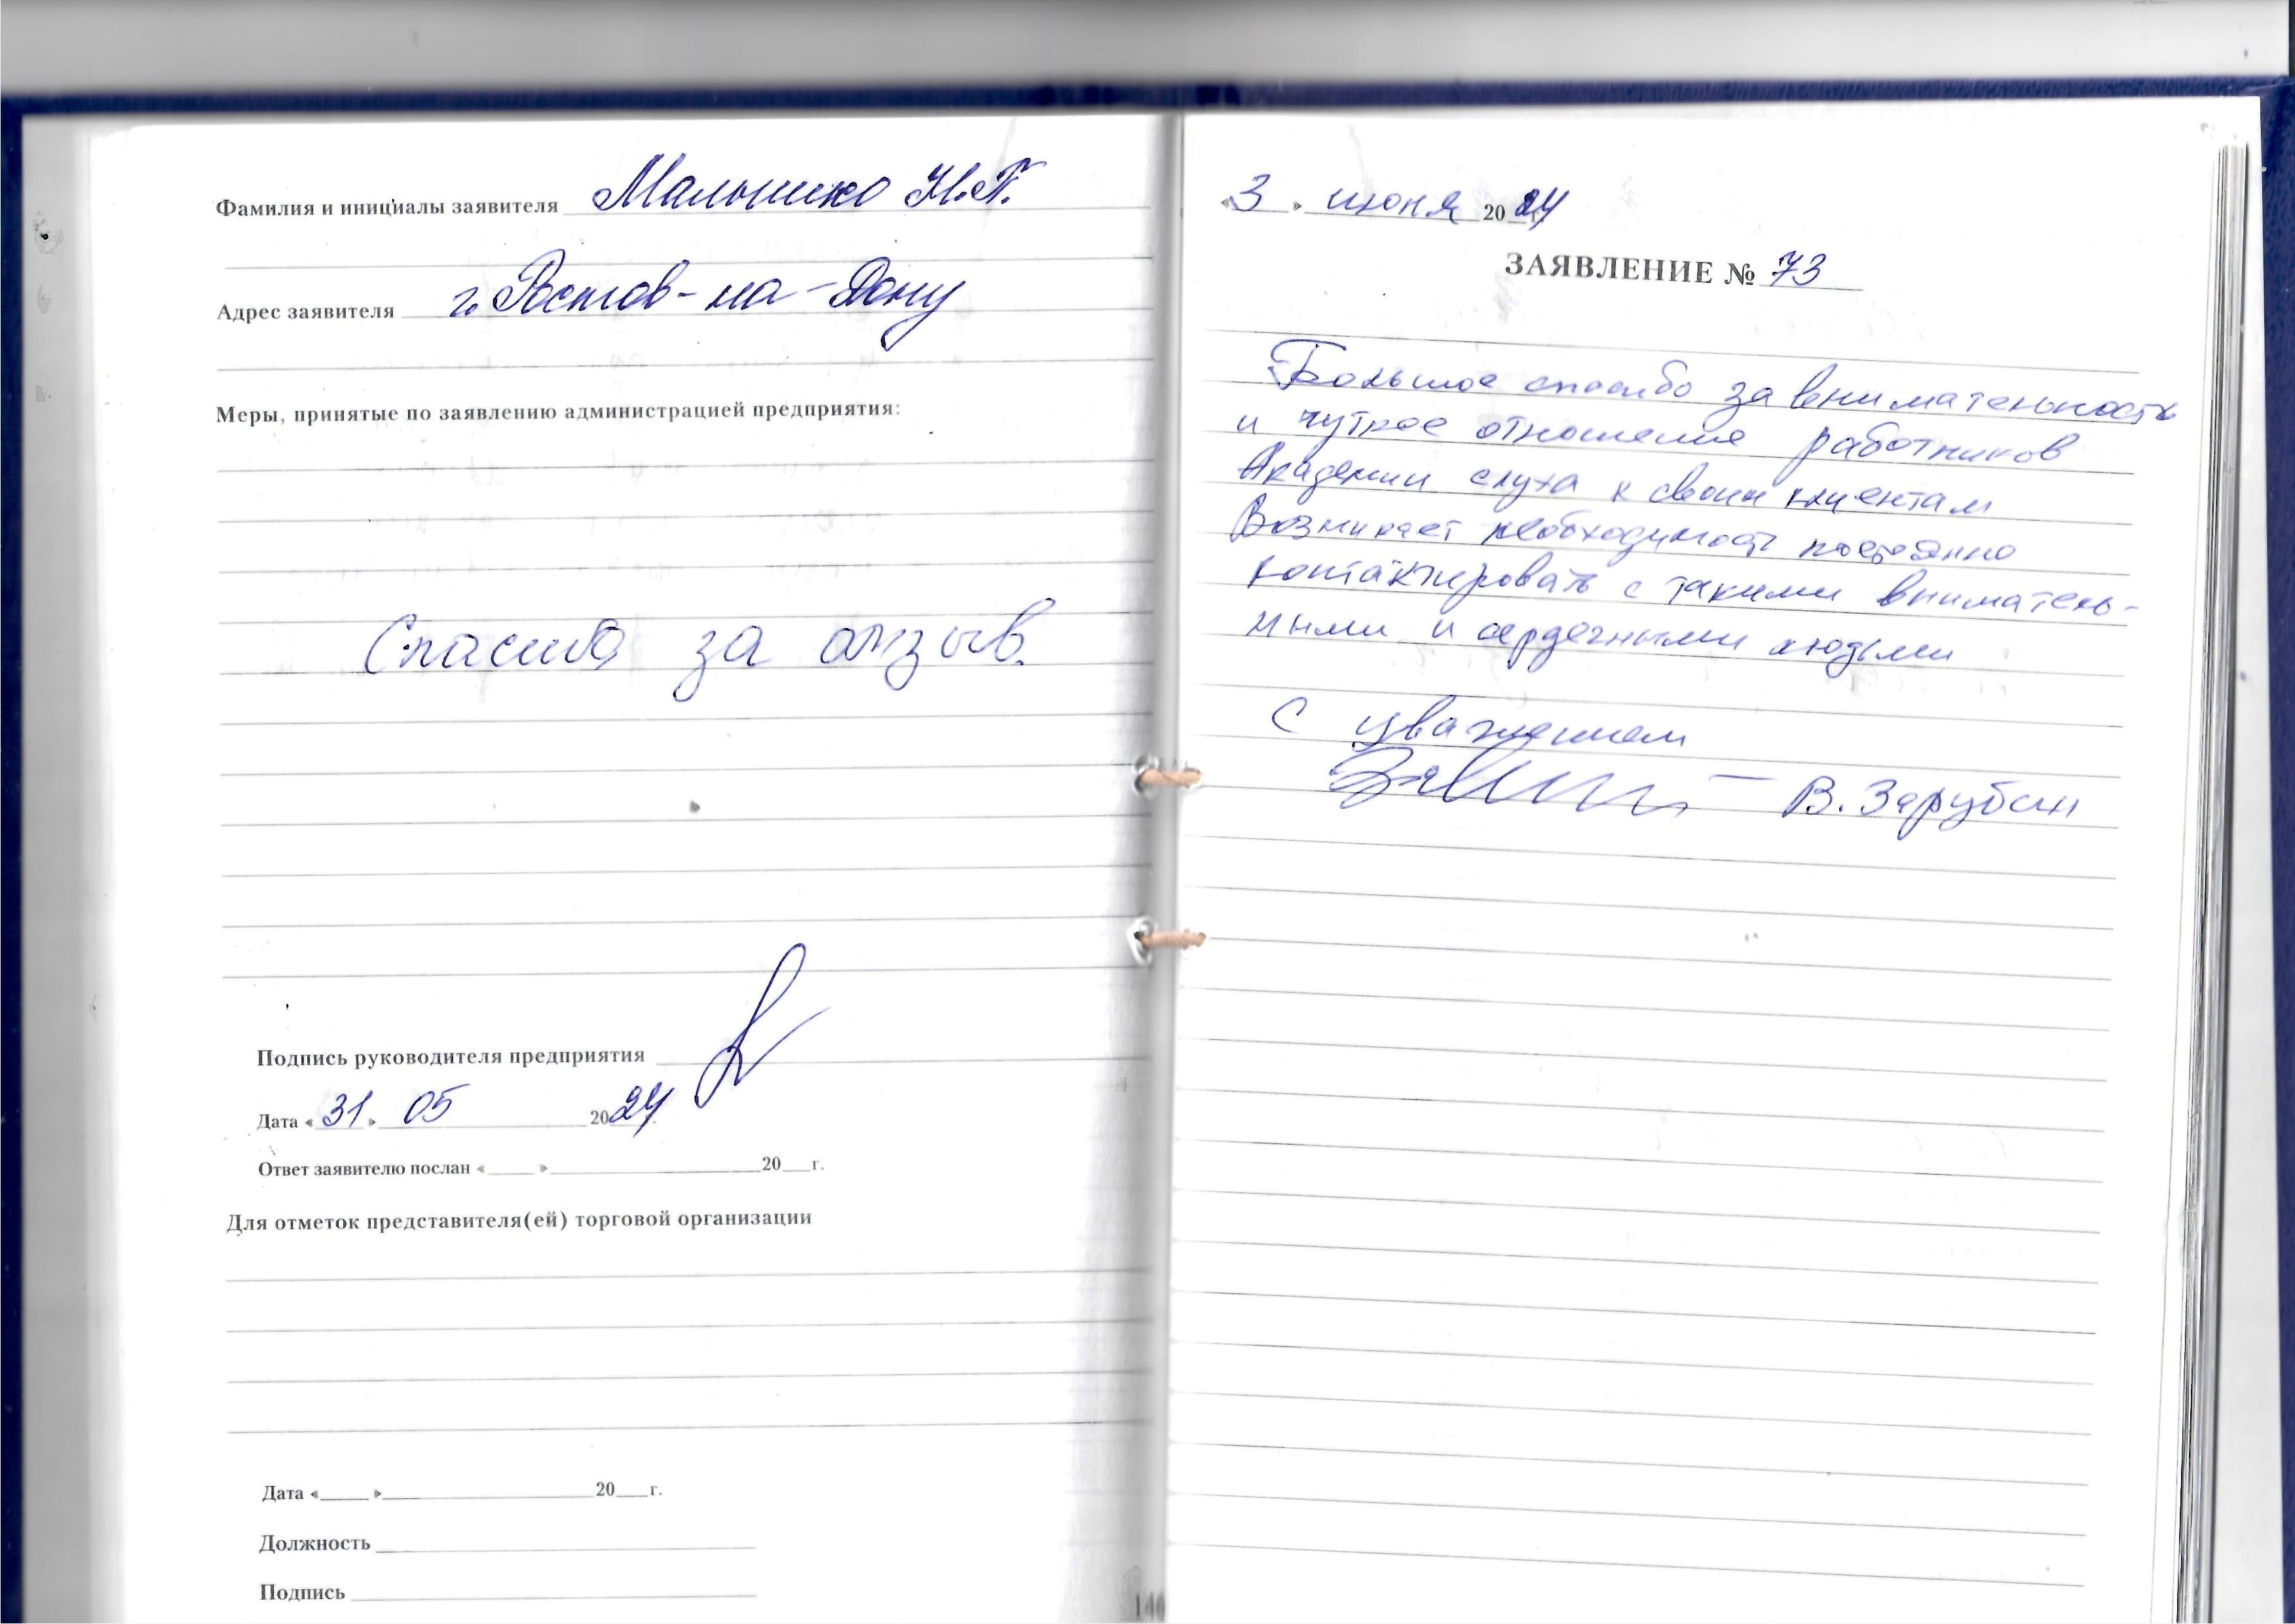 Фамилия и инициалы заявителя Малышко Н.П.
Адрес заявителя г. Ростов-на-Дону
Меры, принятые по заявлению администрацией предприятия:
Спасибо за отзыв.
Подпись руководителя предприятия
Дата «31» 05 2024
Ответ заявителю послан «____» ____ 20___г.
Для отметок представителя(ей) торговой организации
Дата «____» ____ 20___г.
Должность
Подпись
140
«3» июня 2024
ЗАЯВЛЕНИЕ № 73
Большое спасибо за внимательность
и чуткое отношение работников
Академии слуха к своим клиентам
Возникает необходимость постоянно
контактировать с такими вниматель-
ными и сердечными людьми
С уважением
— В. Зарубин